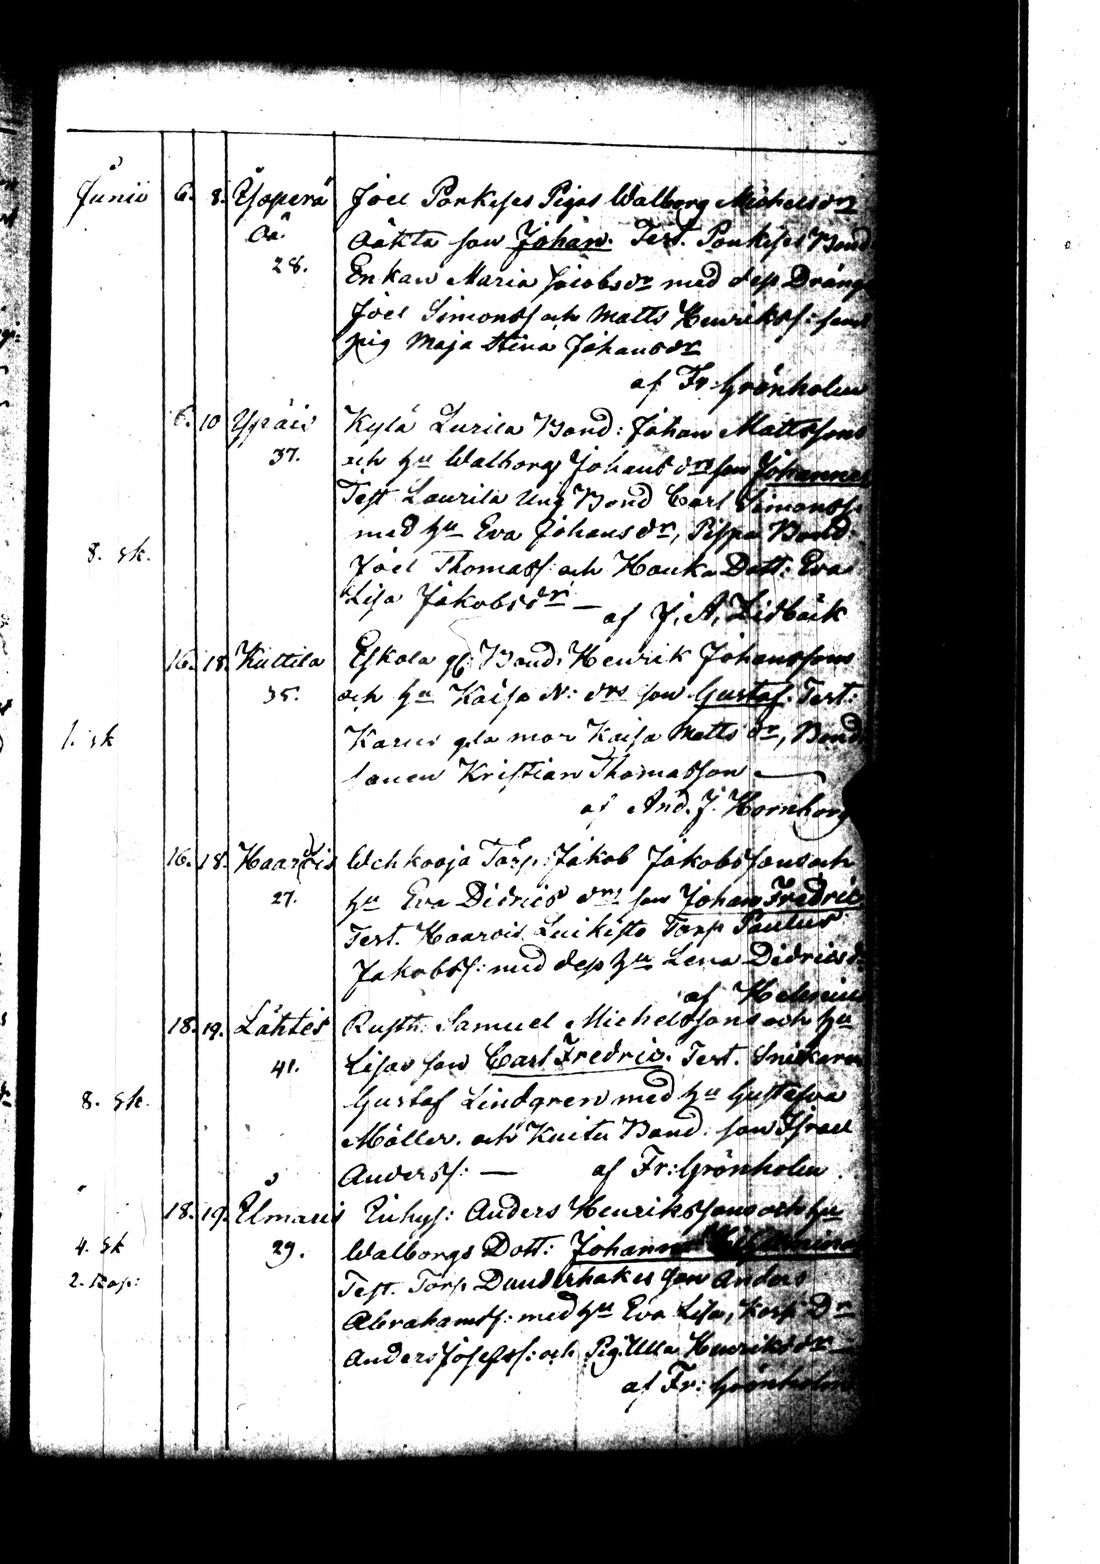 Junii 6. 8. Yöperä Joel Porkises Pigas Walborg Michelsdrs
Oä. Oäkta son Johan. Test. Porkises Bond
28. Enkan Maria Jacobsdr med dess Dräng
Joel Simonss och Matts Henrikss: samt
pig Maja Stina Johansdr
af Fr: Grönholm
6. 10 Ypäis Kylä Lurila Bond: Johan Mattssons
37. och hu Walborgs Johansdrs son Johannes
Test Laurila Ung Bond Carl Simonss
med hu Eva Johansdr, Bond
8. sk. Joel Thomass: och Hauka Dott: Eva
Lisa Jakobsdr — af J. A. Lidbäck
16. 18. Kuttila Eskola gl. Bond. Henrik Johanssons
35. och hu Kaisa N: drs son Gustaf. Test:
1. sk gla mor Kaisa Mattsdr, Bond
sonen Kristian Thomasson —
af And. J. Hornborg
16. 18. Haarois Torp: Jakob Jakobssons och
27. hu Eva Didrics drs son Johan Fredric
Test. Haarois Torp Paulus
Jakobss: med dess hu Lena Didricsdr
af
18. 19. Lähtes Rusth: Samuel Michelssons och hu
41. Lisas son Carl Fredric. Test. Snickaren
8. sk. Gustaf Lindgren med hu Gustafva
Möller. och Bond: son Israel
Anderss: — af Fr: Grönholm
18. 19. Elmaris Inhys: Anders Henrikssons och hu
4. sk 29. Walborgs Dott:
2. kop: Test. Torp son Anders
Abrahamss: med hu Eva Lisa, Dr
Anders Josefss: och Pig. Ulla Henriksdr —
af Fr: Grönholm